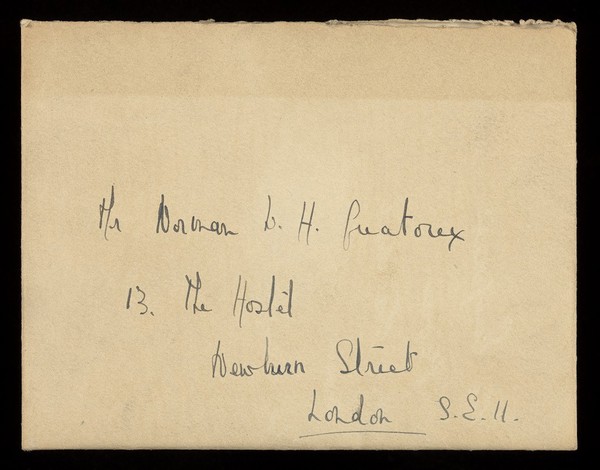 Mr Norman W. H. Greatorex
13. The Hostel
Newburn Street
London S.E.11.